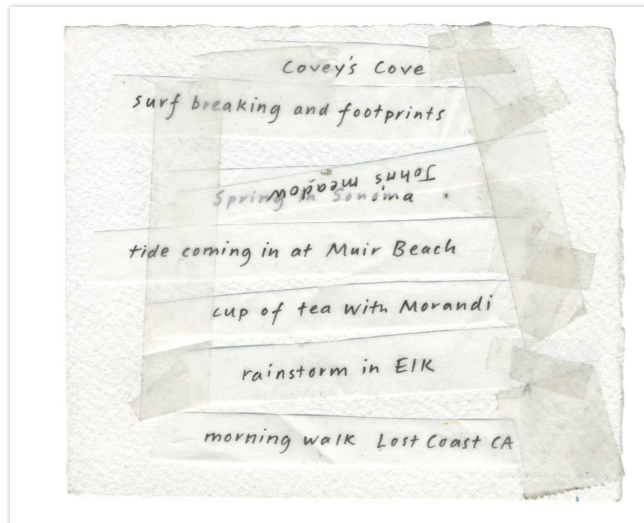 Covey's Cove
surf breaking and footprints
Johns meadow
Spring in Sonoma
tide coming in at Muir Beach
cup of tea with Morandi
rainstorm in Elk
morning walk Lost Coast CA